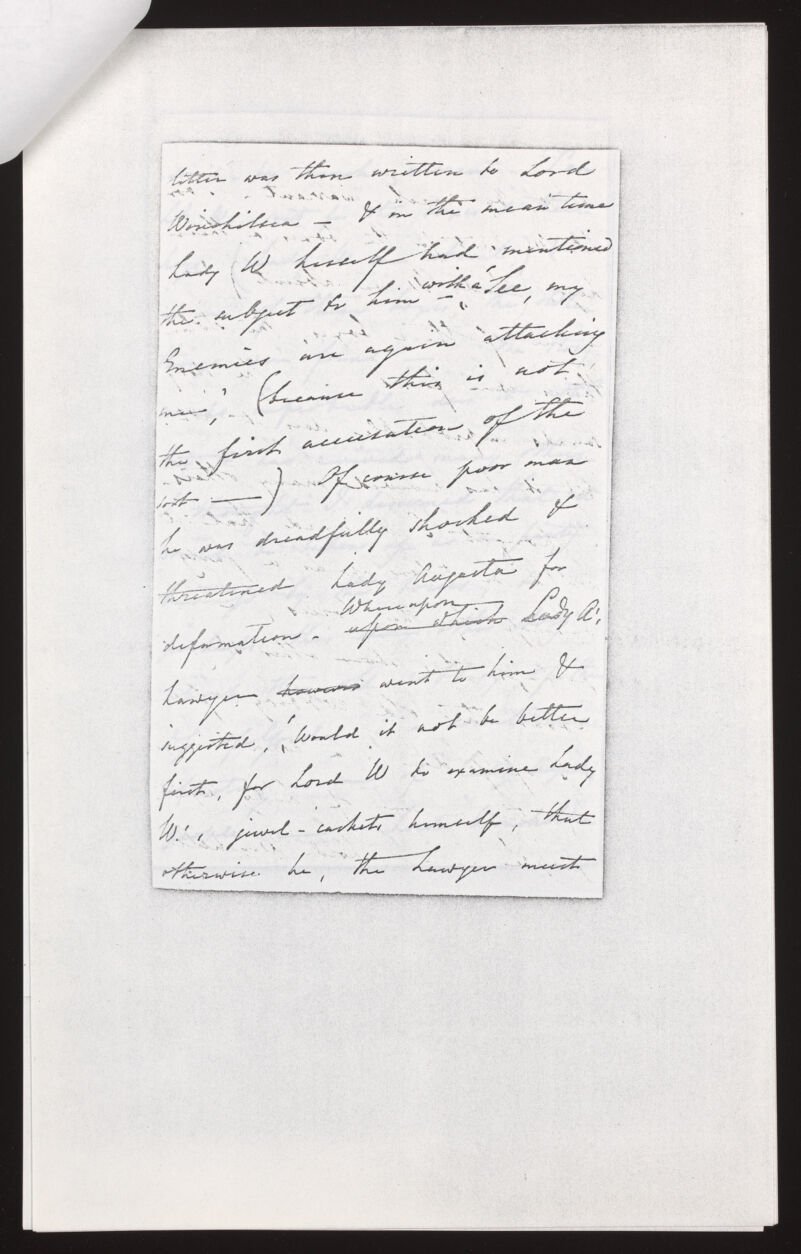 letter was then written to Lord
Winchilsea – & in the mean time
Lady W herself had mentioned
the subject to him – with a "See, my
Enemies are again attacking
me", (because this is not
the first accusation of the
sort —) Of course poor man
he was dreadfully shocked &
threatened Lady Augusta for
defamation – Whereupon upon which Lady A's,
Lawyer however went to him &
suggested, "Would it not be better
first, for Lord W to examine Lady
W's, jewel-caskets himself, that
otherwise he, the Lawyer must